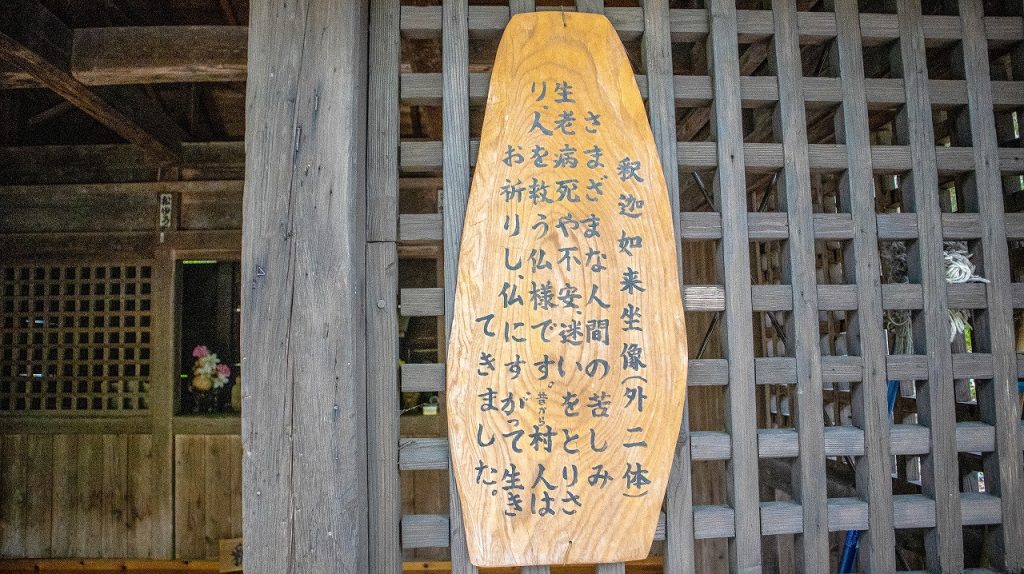 釈迦如来坐像(外二体)
さまざまな人間の苦しみ
生老病死や不安、迷いをとりさ
り、人を救う仏様です。昔から村人は
お祈りし、仏にすがって生き
てきました。